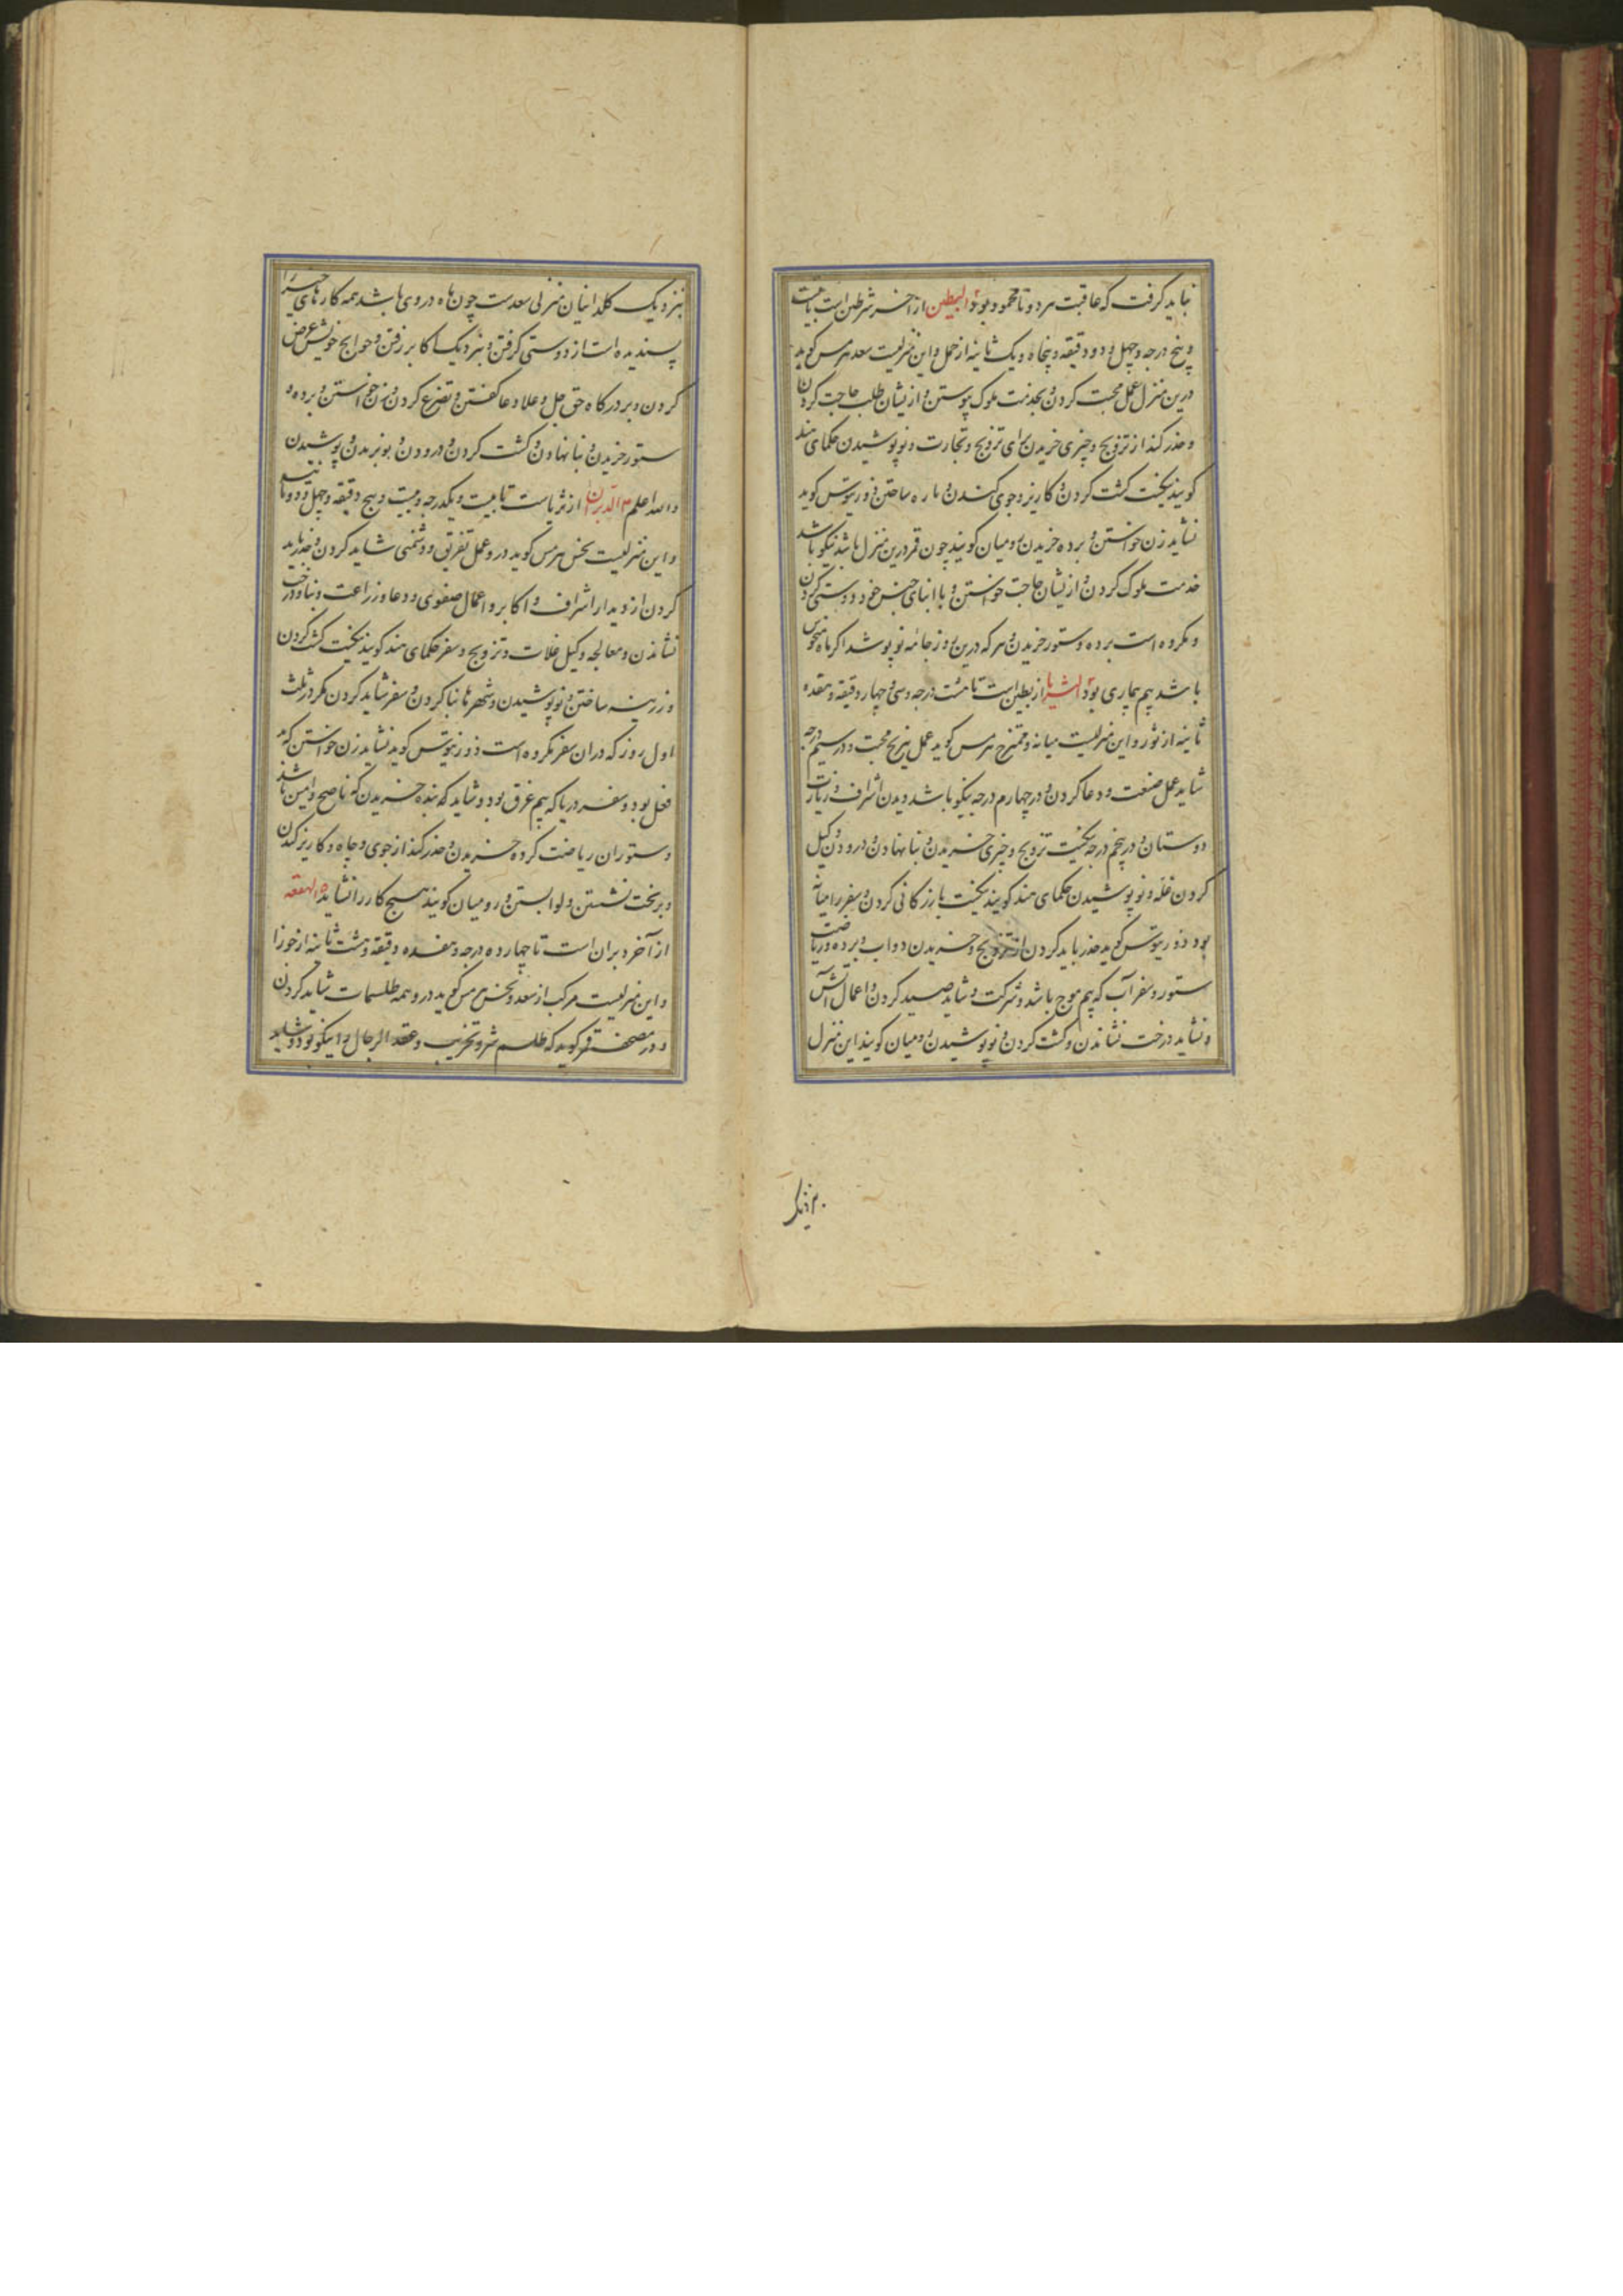 نباید گرفت که عاقبت هر دو نامحمود بود ۲ البطین از آخر شرطین است تا بیست
و پنج درجه و چهل و دو دقیقه و پنجاه و یک ثانیه از حمل و این منزلیست سعد هرمس گوید
درین منزل عمل محبت کردن و بخدمت ملوک پیوستن و ازیشان طلب حاجت کردن
و حذر کند از تزویج و چیزی خریدن برای تزویج و تجارت و نو پوشیدن حکمای هند
گویند نیکست کشت کردن و کاریز و جوی کندن و باره ساختن ذوریوس گوید
نشاید زن خواستن و برده خریدن رومیان گویند چون قمر درین منزل باشد نیکو باشد
خدمت ملوک کردن و ازیشان حاجت خواستن و با ابنای جنس خود دوستی کردن
و مکروه است برده و ستور خریدن و هر که درین روز جامه نو پوشد اگر ماه منحوس
باشد بیم بیماری بود ۳ الثریا از بطین است تا هشت درجه و سی و چهار دقیقه و هفده
ثانیه از ثور و این منزلیست میانه و ممتزج هرمس گوید عمل نیرنج محبت و در سیم درجه
شاید عمل صنعت و دعا کردن و در چهارم درجه نیکو باشد دیدن اشراف و زیارت
دوستان و در پنجم درجه نیکست تزویج و چیزی خریدن و بنا نهادن و درودن و کیل
کردن غله و نو پوشیدن حکمای هند گویند نیکست بازرگانی کردن و سفر را میانه
بود ذوریوس گوید حذر باید کردن از تزویج و خریدن دواب و برده و ریاضت
ستور و سفر آب که بیم موج باشد و شرکت و شاید صید کردن و اعمال آتش
و نشاید درخت نشاندن و کشت کردن و نو پوشیدن رومیان گویند این منزل
بنزدیک
بنزدیک کلدانیان منزلی سعدست چون ماه در وی باشد همه کارهای خیر را
پسندیده است از دوستی گرفتن و بنزدیک اکابر رفتن و حوایج خویش عرض
کردن و بر درگاه حق جل و علا دعا گفتن و تضرع کردن و زن خواستن و برده و
ستور خریدن و بنا نهادن و کشت کردن و درودن و نو بریدن و پوشیدن
والله اعلم ۴ الدبران از ثریاست تا بیست و یکدرجه و بیست و پنج دقیقه و چهل و دو ثانیه
و این منزلیست نحس هرمس گوید درو عمل تفریق و دشمنی شاید کردن و حذر باید
کردن از دیدار اشراف و اکابر و اعمال صفوی و دعا و زراعت و بنا و درخت
نشاندن و معالجه و کیل غلات و تزویج و سفر حکمای هند گویند نیکست کشت کردن
و زرینه ساختن و نو پوشیدن و شهرها بنا کردن و سفر شاید کردن مگر در ثلث
اول روز که در آن سفر مکروه است ذوریوس گوید نشاید زن خواستن که بد
فعل بود و سفر دریا که بیم غرق بود و شاید که بنده خریدن که ناصح و امین باشد
و ستوران ریاضت کرده خریدن و حذر کند از جوی و چاه و کاریز کندن
و بر تخت نشستن و لوا بستن و رومیان گویند هیچ کار را نشاید ۵ الهقعه
از آخر دبران است تا چهارده درجه و هفده دقیقه و هشت ثانیه از جوزا
و این منزلیست مرکب از سعد و نحس هرمس گوید درو همه طلسمات شاید کردن
و در مصحف قمر گوید که طلسم شر و تخریب و عقد الرجال را نیکو بود و شاید